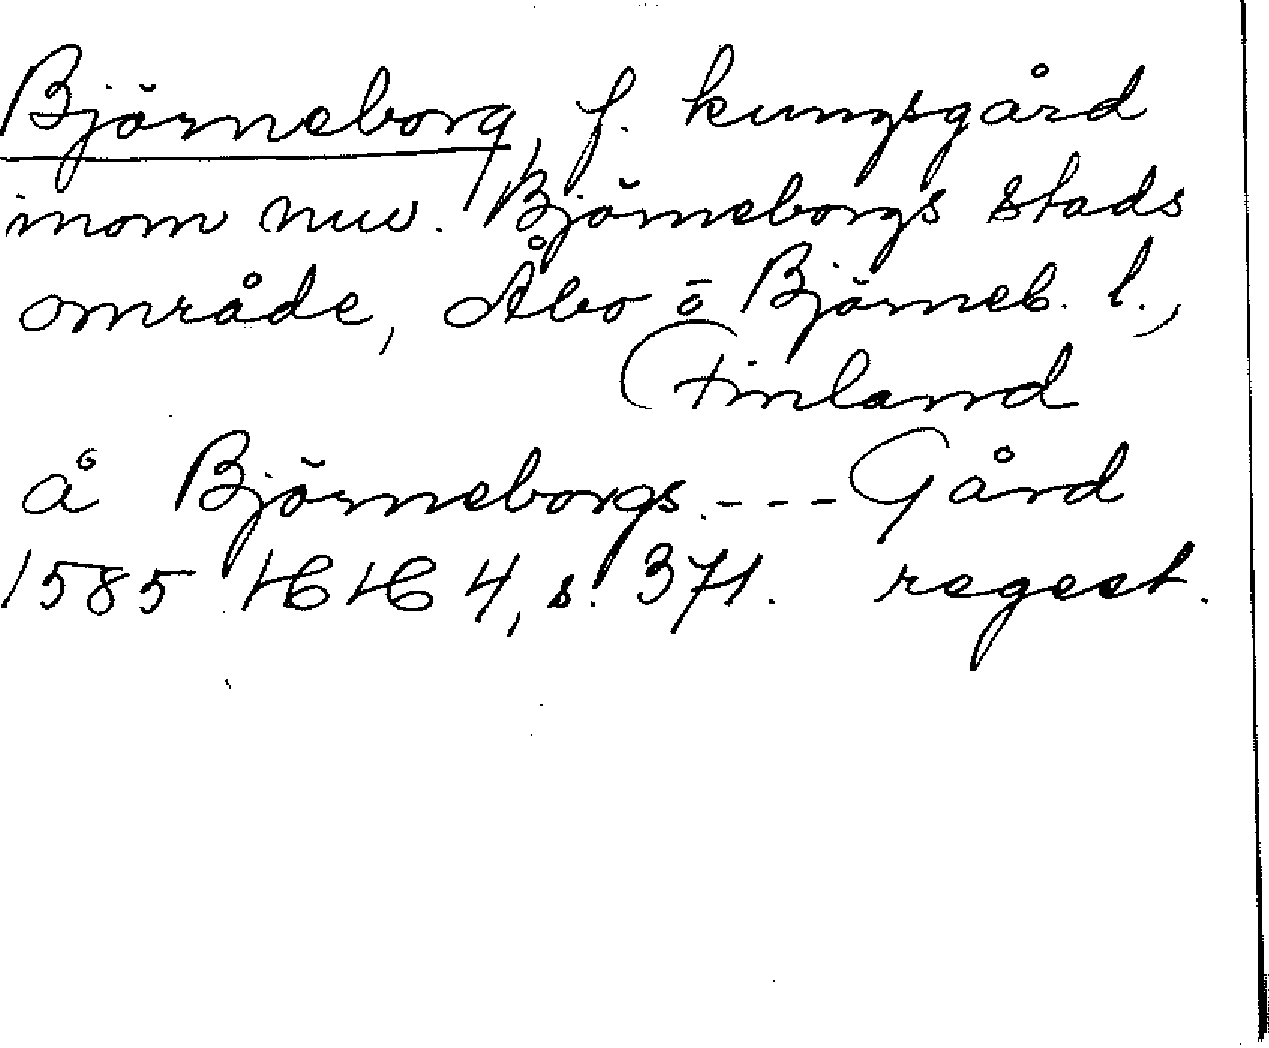 Björneborg, f. kungsgård
inom nuv. Björneborgs stads
område, Åbo o Björneb. l.,
Finland
å Björneborgs --- Gård
1585 HH 4, s. 371. regest.